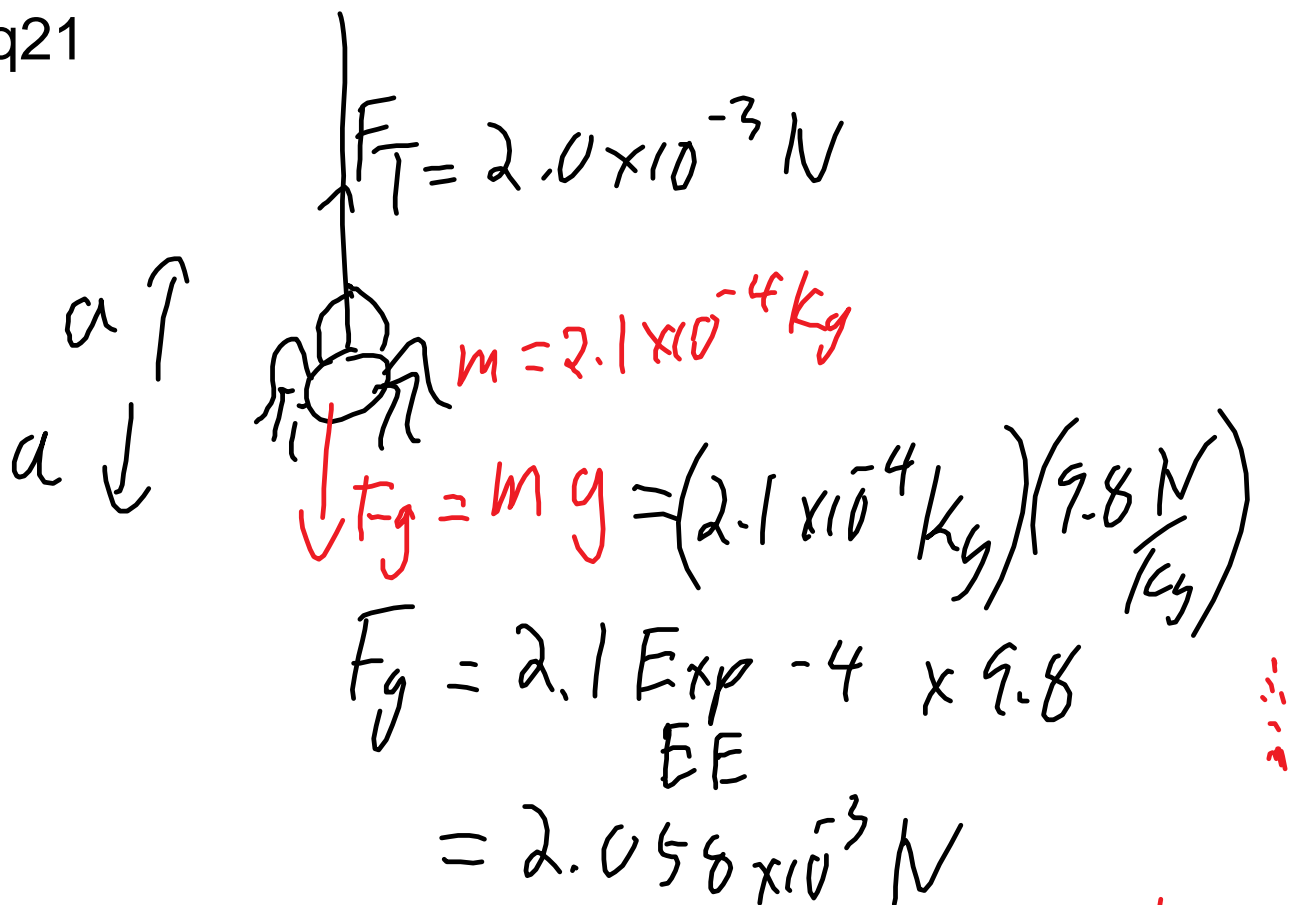 q21
F_T = 2.0 × 10^-3 N
a ↑
m = 2.1 × 10^-4 kg
a ↓
Fg = mg = (2.1 × 10^-4 kg)(9.8 N/kg)
Fg = 2.1 Exp -4 × 9.8
EE
= 2.058 × 10^-3 N